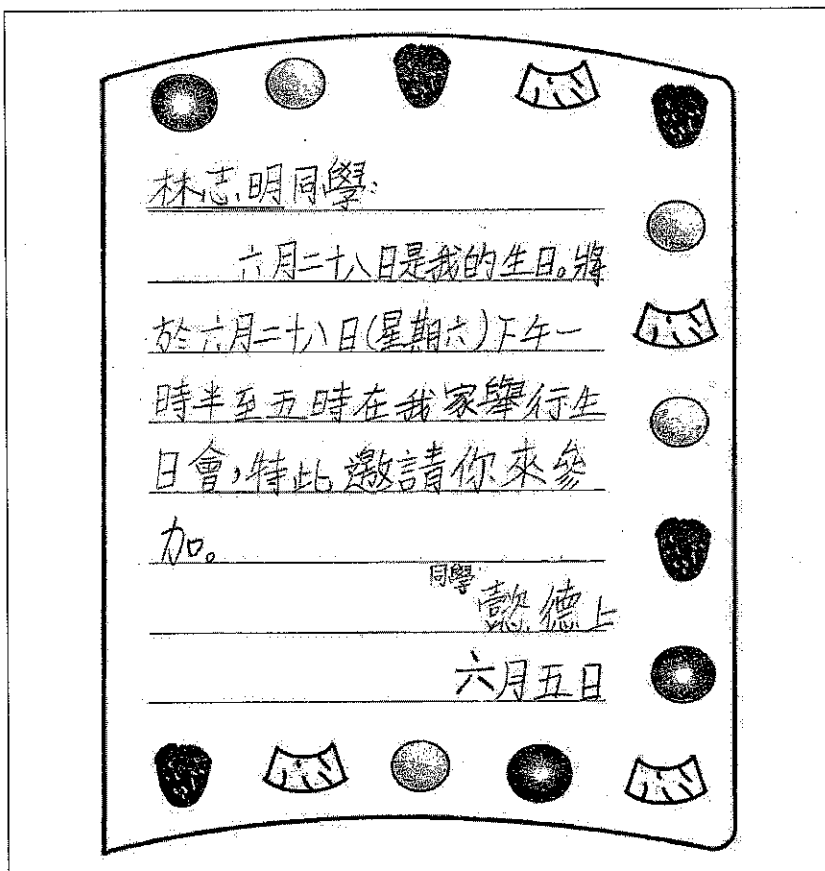 林志明同學:
六月二十八日是我的生日。將
於六月二十八日(星期六)下午一
時半至五時在我家舉行生
日會,特此邀請你來參
加。
同學
懿德上
六月五日